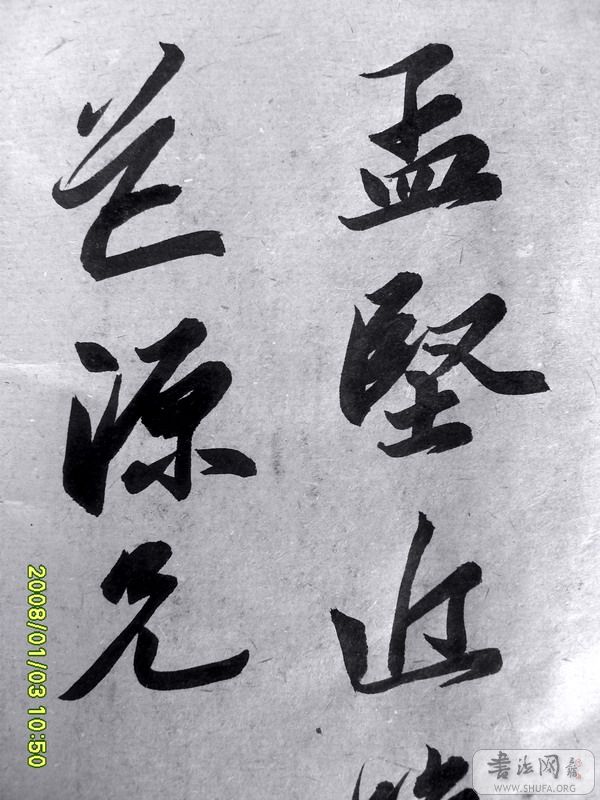 孟堅近
源兄
2008/01/03 10:50
書法网
WWW.SHUFA.ORG